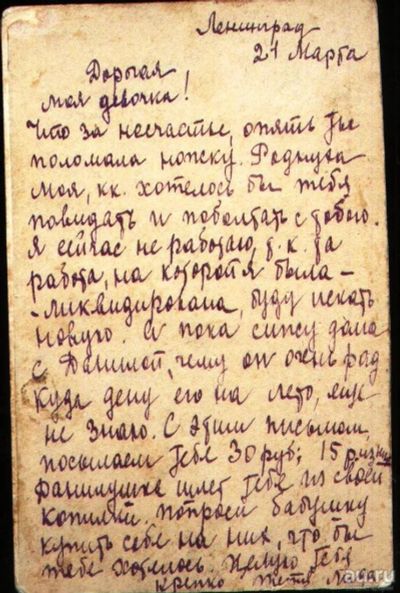 Ленинград
21 Марта
Дорогая
моя девочка!
Что за несчастье, опять ты
поломала ножку. Роднуша
моя, кк. хотелось бы тебя
повидать и поболтать с тобою.
Я сейчас не работаю, т.к. та
работа, на которой я была -
- ликвидирована, буду искать
новую. А пока сижу дома
с Данилой, чему он очень рад.
Куда дену его на лето, еще
не знаю. С этим письмом
посылаем тебе 30 руб; 15
Данилушка шлет тебе из своей
копилки попроси бабушку
купить себе на них, что бы
тебе хотелось. Целую тебя
крепко тетя
au.ru